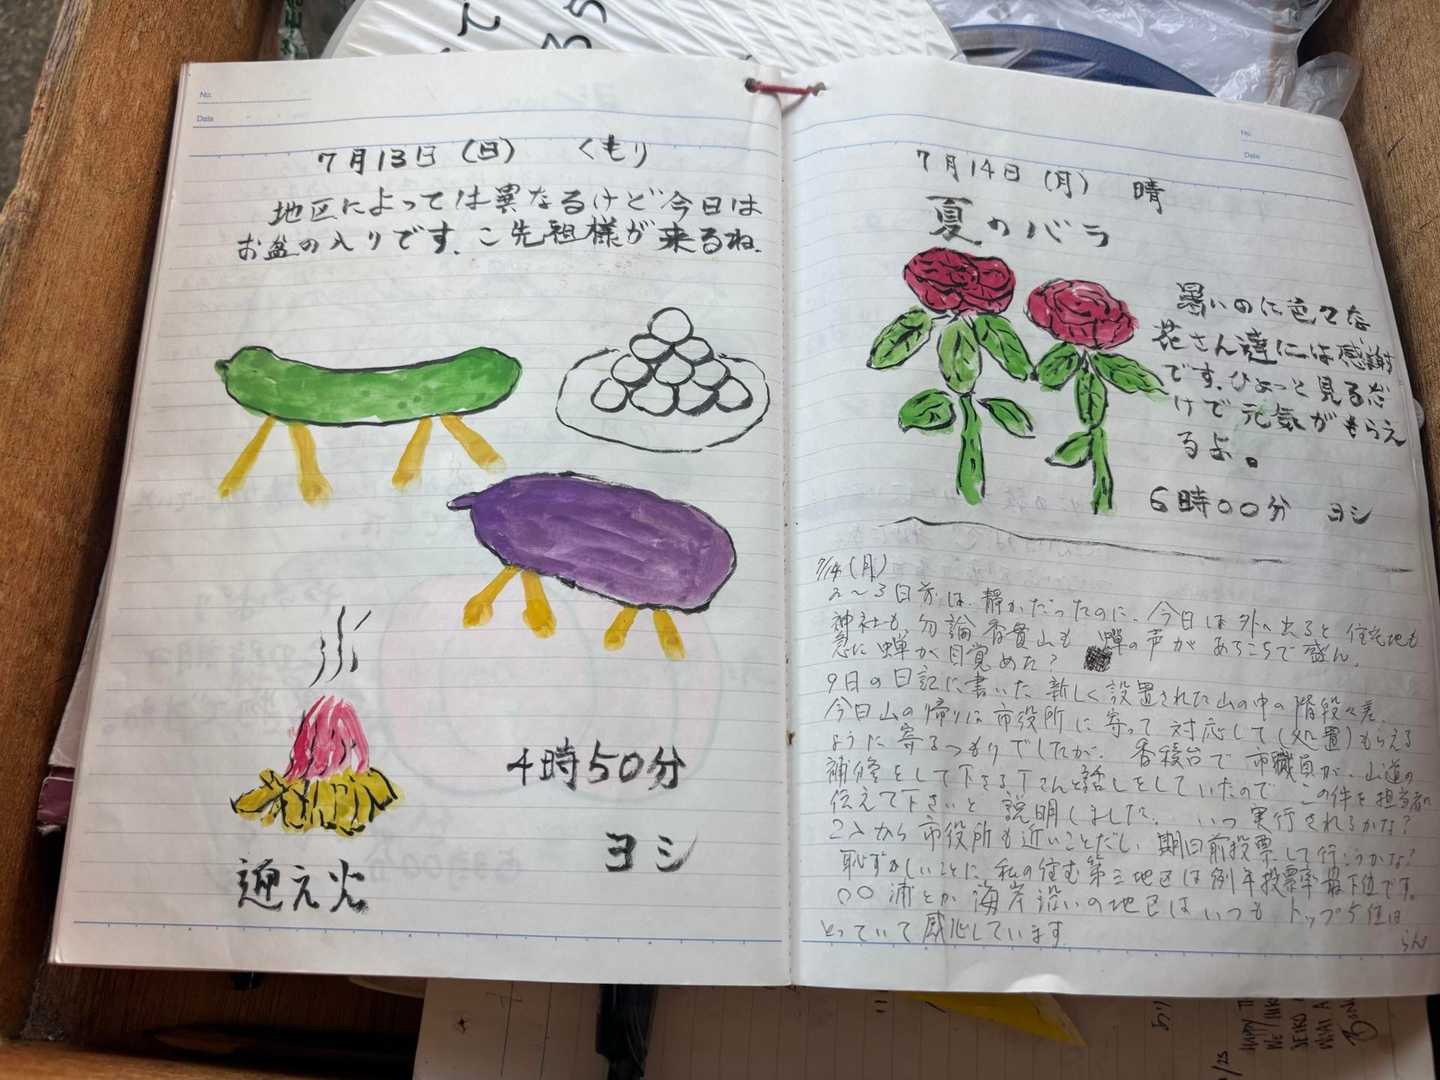 No.
Date
7月13日(日) くもり
地区によっては異なるけど今日は
お盆の入りです。ご先祖様が来るね。
4時50分
ヨシ
迎え火
No.
Date
7月14日(月) 晴
夏のバラ
暑いのに色々な
花さん達には感謝
です。ひょっと見るだ
けで元気がもらえ
るよ。
6時00分 ヨシ
7/14(月)
2〜3日前は、静かだったのに、今日は外へ出ると住宅地も
神社も、勿論香貫山も 蝉の声があちこちで盛ん。
急に蝉が目覚めた?
9日の日記に書いた新しく設置された山の中の階段の差、
今日山の帰りに市役所に寄って対応して(処置)もらえる
ように寄るつもりでしたが、香稜台で市職員が、山道の
補修をして下さるTさんと話しをしていたので この件を担当者に
伝えて下さいと説明しました。 いつ実行されるかな?
市役所も近いことだし、期日前投票して行こうかな?
恥ずかしいことに、私の住む第三地区は例年投票率最下位です。
〇〇浦とか海岸沿いの地区はいつもトップ5位は
とっていて感心しています。
らん